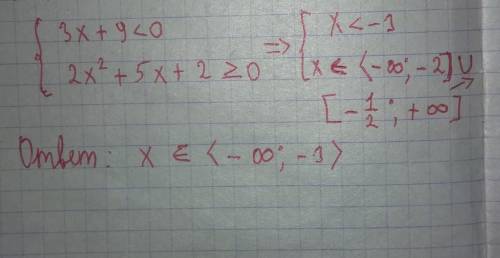 { 3x + 9 < 0 => { x < -3
{ 2x² + 5x + 2 ≥ 0 { x ∈ ⟨-∞; -2] ∪
[-1/2; +∞]
Ответ: x ∈ ⟨-∞; -3⟩